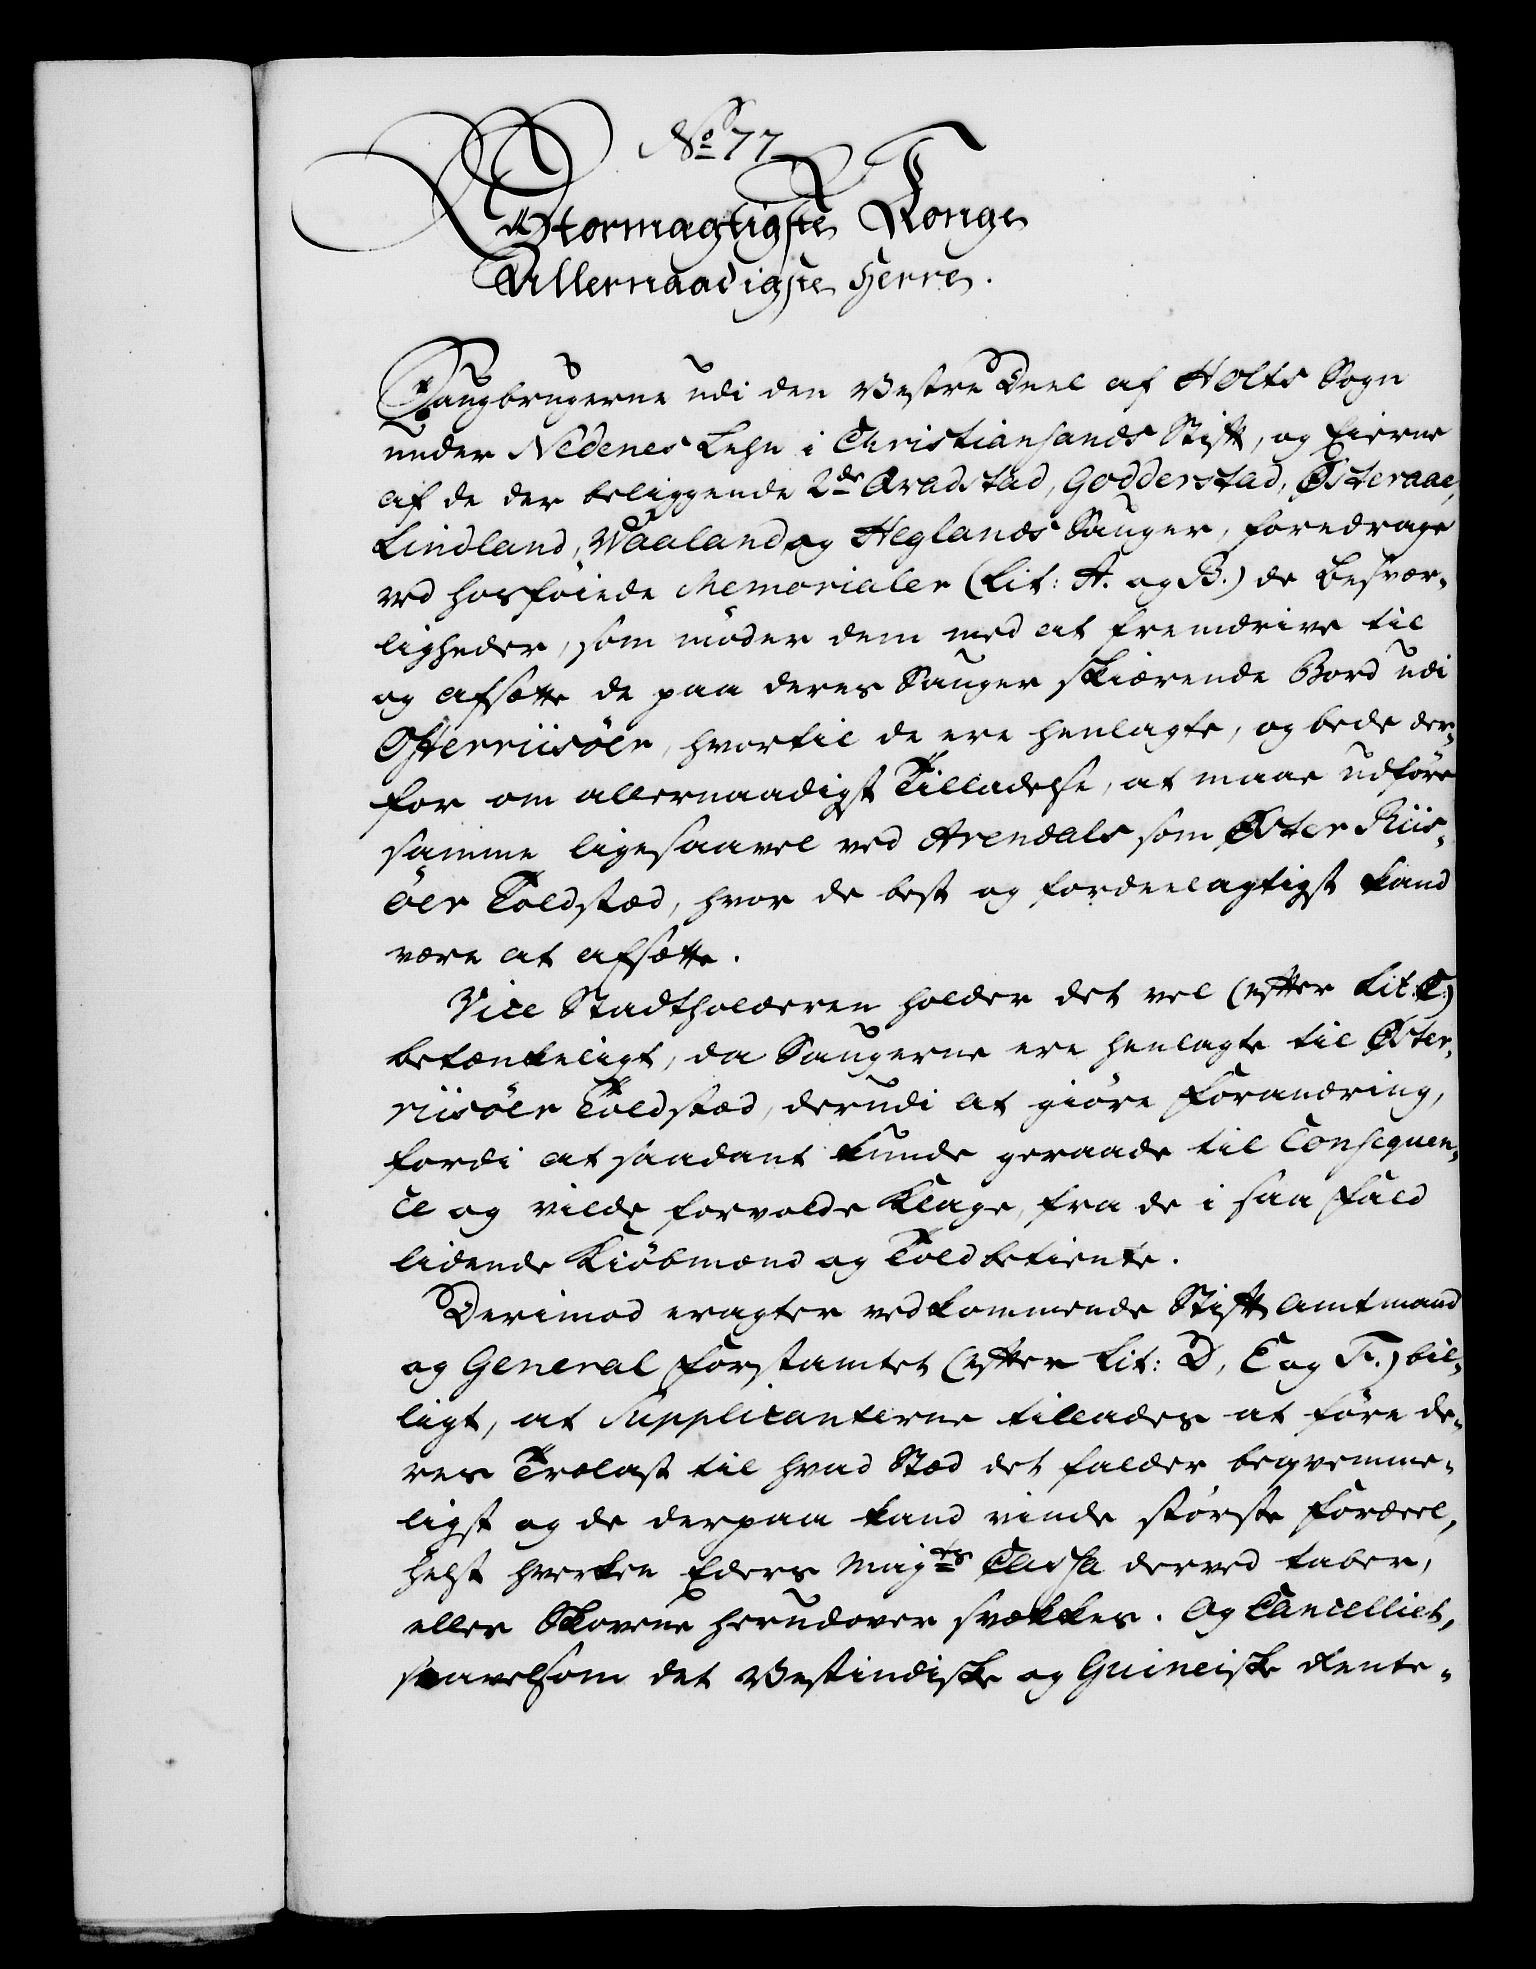 No 77
Stormægtigste Konge
Allernaadigste Herre.
Saugbrugerne udi den Vestre Deel af Holts Sogn
under Nedenes Lehn i Christiansands Stift, og Eierne
af de der beliggende 2de Aradstad, Godderstad, Østeraae,
Lindland, Waaland og Heglands Sauger, foredrage
ved hosføiede Memorialer (Lit: A. og B.) de besvær-
ligheder, som møder dem med at fremdrive til
og afsætte de paa deres Sauger skiærende Bord udi
Østerriisöer, hvortil de ere henlagte, og bede der-
for om allernaadigst Tilladelse, at maae udføre
samme ligesaavel ved Arendals som Øster Riis-
öer Toldsted, hvor de best og fordeelagtigst kand
være at afsætte.
Vice Stadtholderen holder det vel (efter Lit: C.)
betænkeligt, da Saugerne ere henlagte til Øster-
riisöer Toldsted, derudi at giøre Forandring,
fordi at saadant kunde geraade til Consequen-
ce og vilde forvolde Klage, fra de i saa Fald
lidende Kiöbmænd og Toldbetiente.
Derimod eragter vedkommende Stift Amtmand
og General Forstamtet (efter Lit: D, E og F.) bil-
ligt, at Supplicanterne tillades at føre de-
res Trælast til hvad Sted det falder beqvemme-
ligst og de derpaa kand vinde største Fordeel,
helst hverken Eders Majts Cassa derved taber,
eller Skovene herudover svækkes. Og Cancelliet,
saavelsom det Vestindiske og Guineiske Rente-